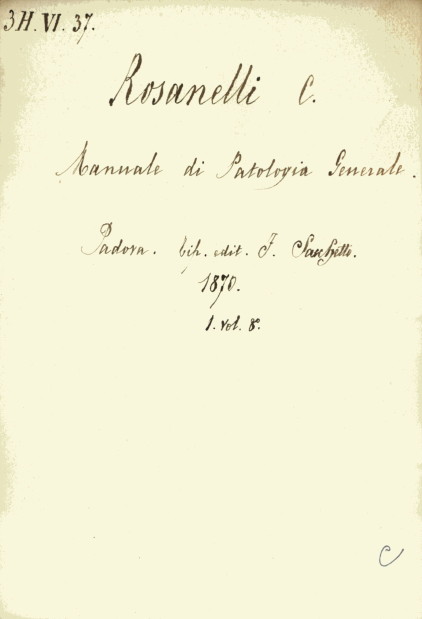 3H. VI. 37.
Rosanelli C.
Manuale di Patologia Generale.
Padova. tih. edit. F. Sacchetto.
1870.
1. vol. 8°.
C